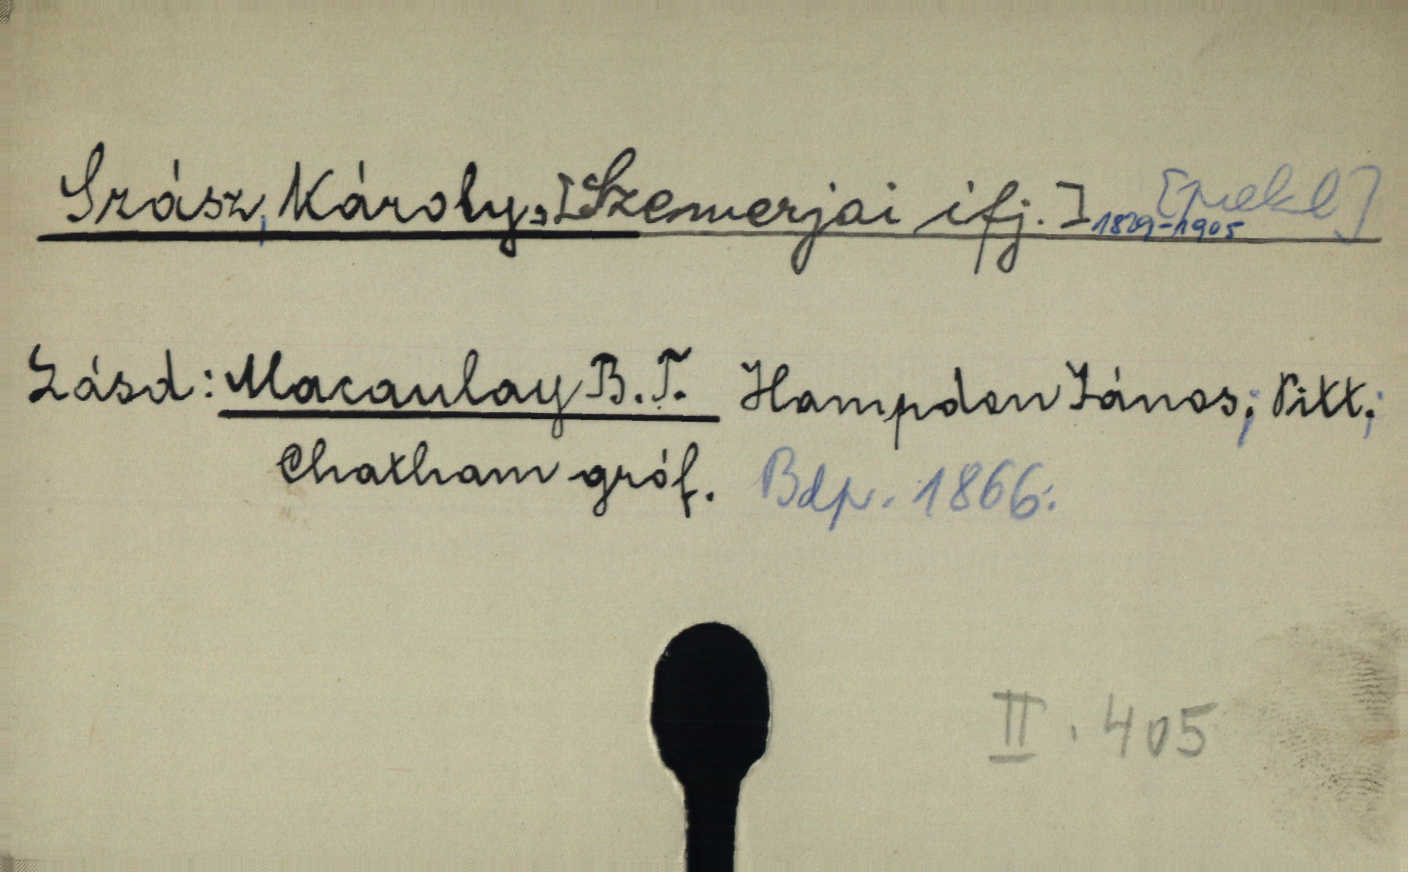 Szász, Károly, [Szemerjai ifj.] 1829-1905
Lásd: Macaulay B.T. Hampden János; Pitt;
Chatham gróf. Bdp. 1866.
II. 405